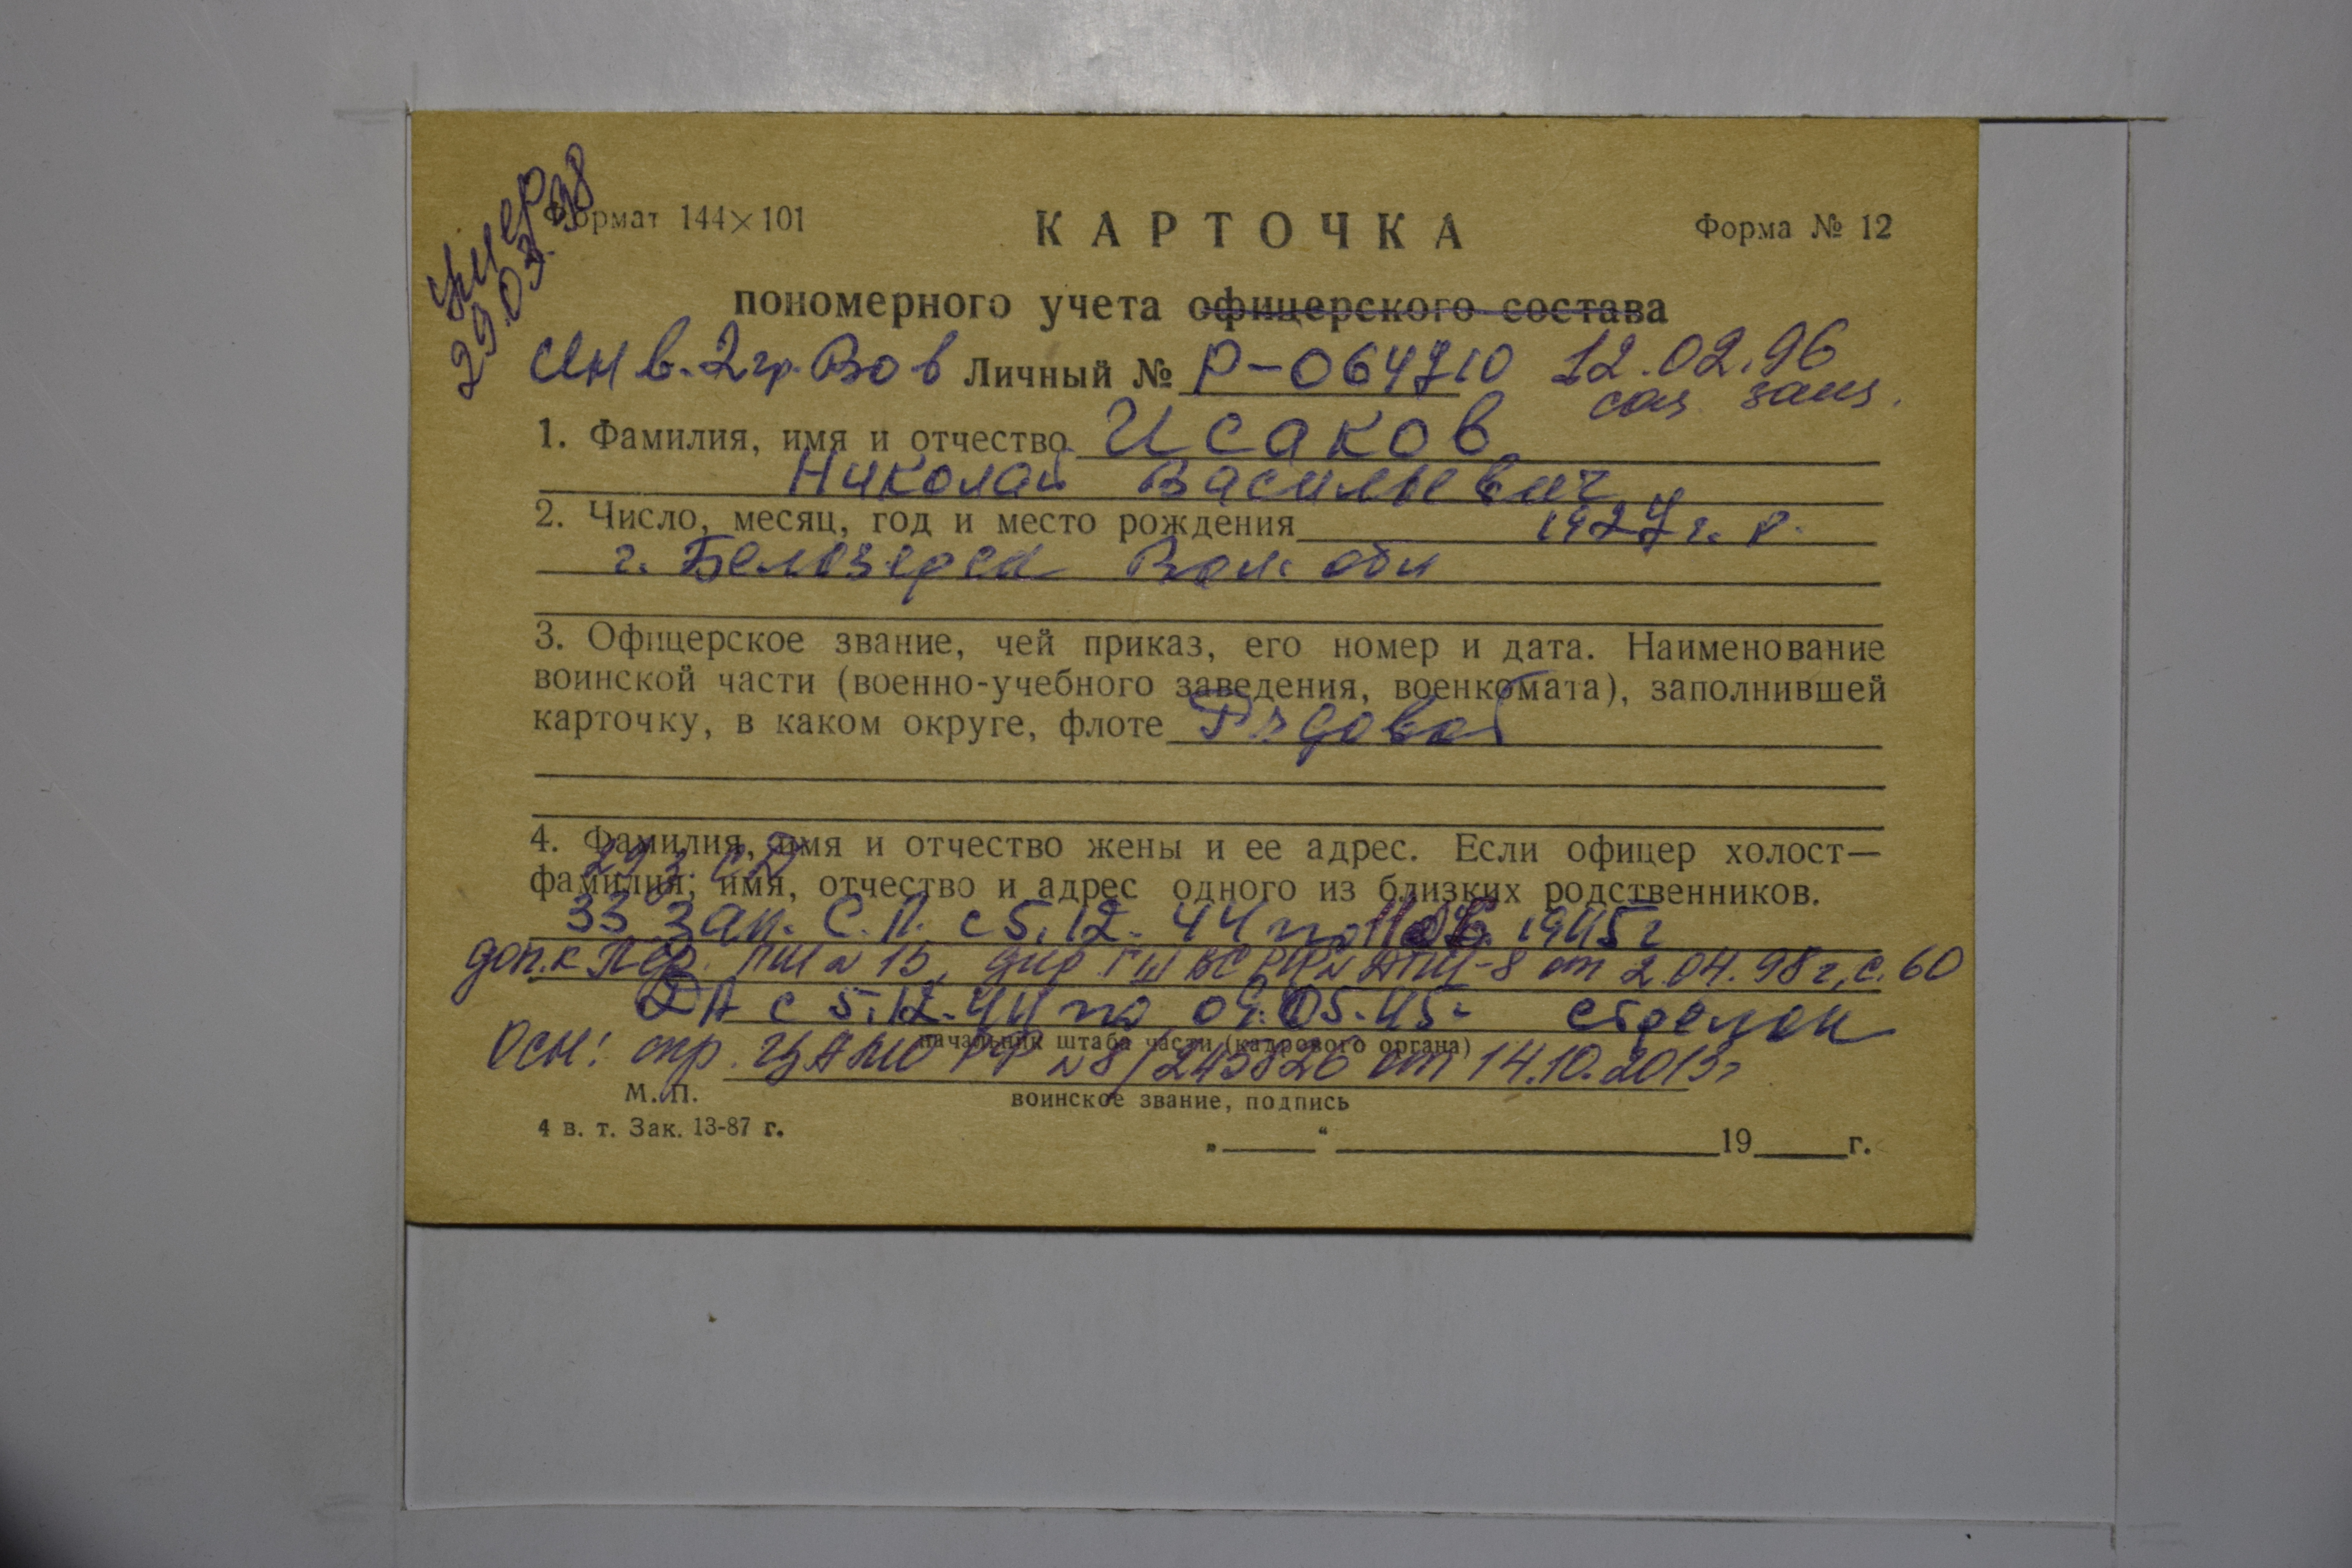 умер
29.03.98
Формат 144×101
КАРТОЧКА
Форма № 12
пономерного учета офицерского состава
Инв. 2 гр. ВОв Личный № Р-064710 12.02.96
1. Фамилия, имя и отчество Исаков
Николай Васильевич
2. Число, месяц, год и место рождения 1927 г. р.
г. Белозерск Вол. обл
3. Офицерское звание, чей приказ, его номер и дата. Наименование
воинской части (военно-учебного заведения, военкомата), заполнившей
карточку, в каком округе, флоте Рядовой
4. Фамилия, имя и отчество жены и ее адрес. Если офицер холост—
29 з. СД
фамилия, имя, отчество и адрес одного из близких родственников.
33 зап. С. П. с 5.12.44 по 1945 г
доп. к Пер. ГШ № 15, дир ГШ ВС РФ № ДГШ-8 от 2.04.98 г, с. 60
ДА с 5.12.44 по 09.05.45 стрелок
начальник штаба части (кадрового органа)
Осн: спр. ЦАМО РФ № 8/243826 от 14.10.2013г
М. П.
воинское звание, подпись
4 в. т. Зак. 13-87 г.
„ “ 19 г.